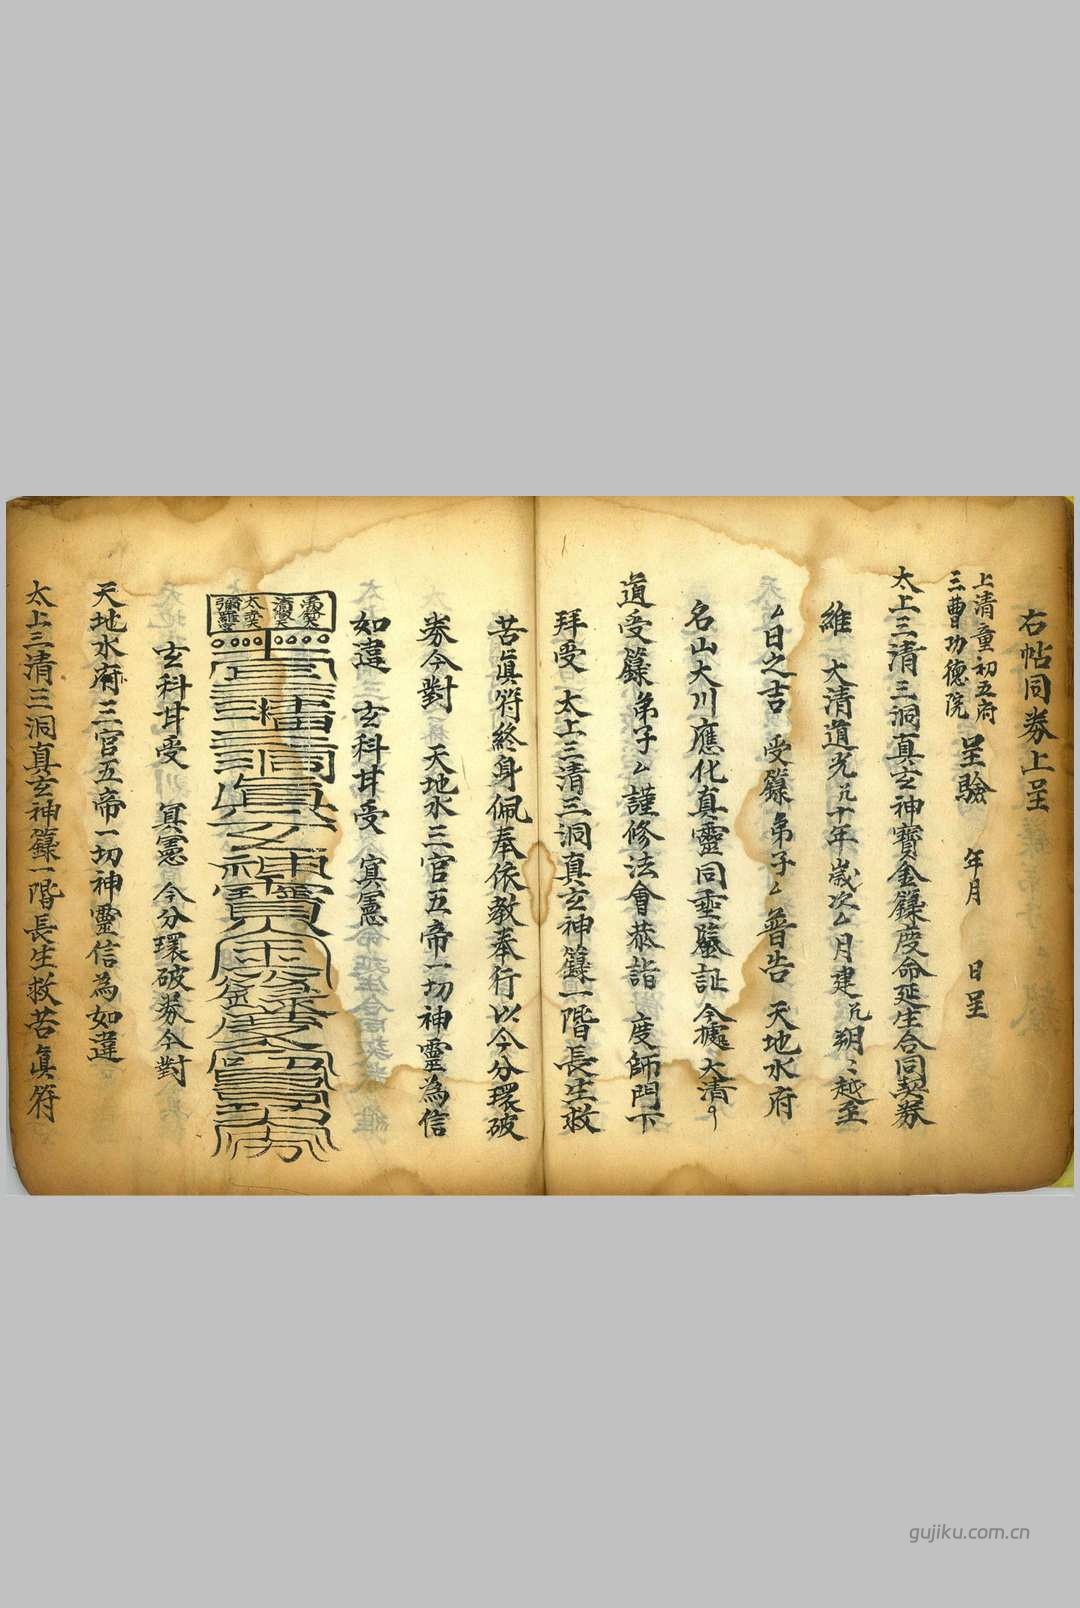 右帖同券上呈
上清童初五府
三曹功德院 呈驗 年月 日呈
太上三清三洞真玄神寶金籙度命延生合同契券
維 大清道光元十年歲次厶月建元朔〻越至
厶日之吉 受籙弟子厶普告 天地水府
名山大川應化真靈同垂鑒証 今據 大清
道受籙弟子厶謹修法會恭詣 度師門下
拜受 太上三清三洞真玄神籙一階長生救
苦眞符終身佩奉依教奉行以今分環破
券今對 天地水三官五帝一切神靈為信
如違 玄科甘受 冥憲
太上三清三洞真玄神寶金籙度命
玄科甘受 冥憲 今分環破券今對
天地水府三官五帝一切神靈信為如違
太上三清三洞真玄神籙一階長生救苦眞符
gujiku.com.cn